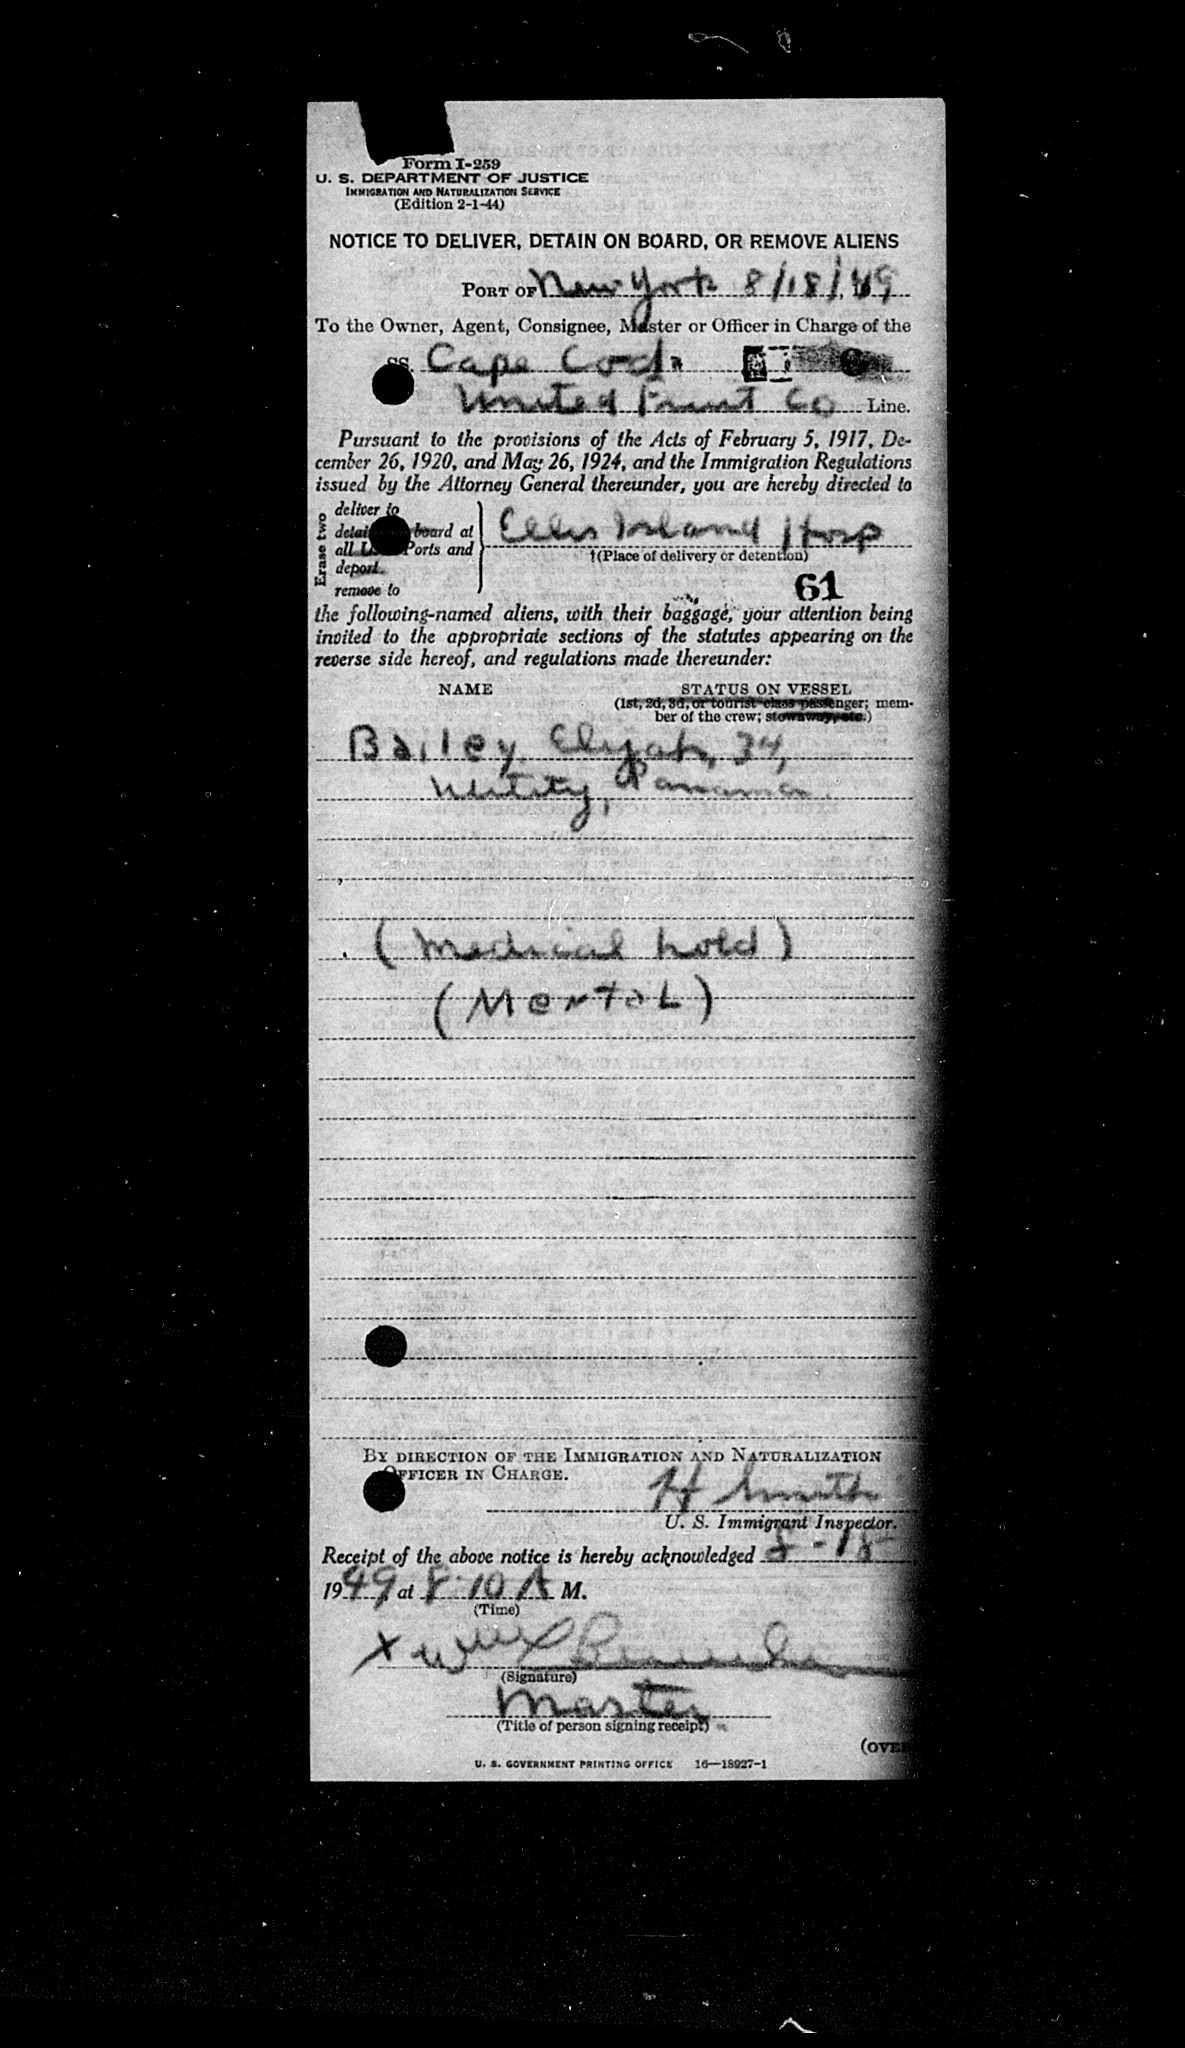 Form I-259
U. S. DEPARTMENT OF JUSTICE
IMMIGRATION AND NATURALIZATION SERVICE
(Edition 2-1-44)
NOTICE TO DELIVER, DETAIN ON BOARD, OR REMOVE ALIENS
PORT OF New York 8/18/, 49
To the Owner, Agent, Consignee, Master or Officer in Charge of the
SS. Cape Cod
United Fruit Co Line.
Pursuant to the provisions of the Acts of February 5, 1917, De-
cember 26, 1920, and May 26, 1924, and the Immigration Regulations
issued by the Attorney General thereunder, you are hereby directed to
Erase two
deliver to
detain board at
all Ports and
deport
remove to
Ellis Island Hosp
†(Place of delivery or detention)
61
the following-named aliens, with their baggage, your attention being
invited to the appropriate sections of the statutes appearing on the
reverse side hereof, and regulations made thereunder:
NAME STATUS ON VESSEL
(1st, 2d, 3d, or tourist class passenger; mem-
ber of the crew; stowaway, etc.)
Bailey, Elijah, 34,
Utility, Panama.
(Medical hold)
(Mental)
BY DIRECTION OF THE IMMIGRATION AND NATURALIZATION
OFFICER IN CHARGE.
H Smith
U. S. Immigrant Inspector.
Receipt of the above notice is hereby acknowledged 8-18
1949, at 8:10 A M.
(Time)
X
(Signature)
Master
(Title of person signing receipt)
(OVER
U. S. GOVERNMENT PRINTING OFFICE 16—18927-1